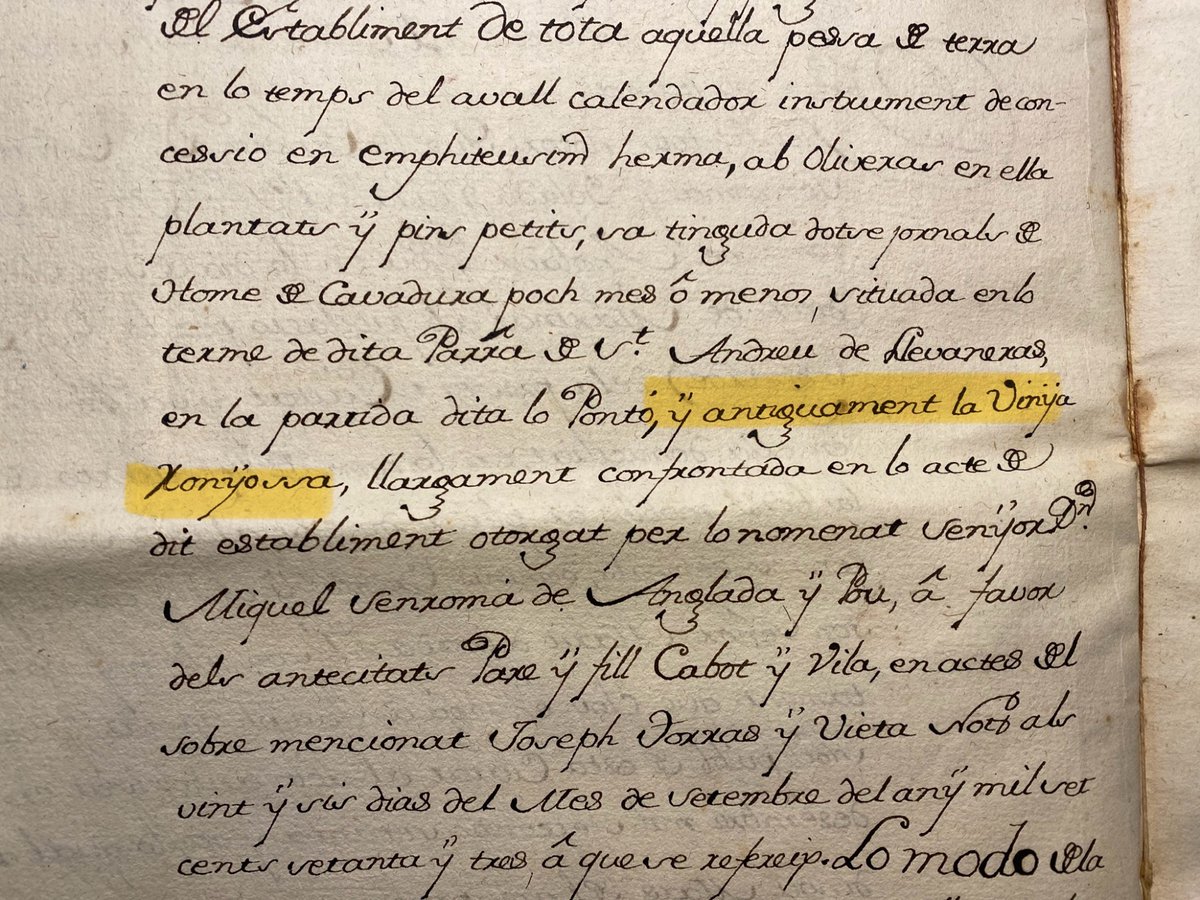 del Establiment de tôta aquella pessa de terra
en lo temps del avall calendador instrument de con-
cessio en emphiteusim herma, ab Oliveras en ella
plantats ÿ pins petits, sa tinguda dotse jornals de
Home de Cavadura poch mes ô menos, situada en lo
terme de dita Parr.â de S.t Andreu de Llevaneras,
en la partida dita lo Pontó, ÿ antiguament la Vinÿa
Ronÿossa, llargament confrontada en lo acte de
dit establiment otorgat per lo nomenat Senÿor D.n
Miquel Senromá de Anglada ÿ Pou, â favor
dels antecitats Pare ÿ fill Cabot ÿ Vila, en actes del
sobre mencionat Joseph Torras ÿ Vieta Not.o als
vint ÿ sis dias del Mes de setembre del anÿ mil set
cents setanta ÿ tres, â que se refereix. Lo modo de la